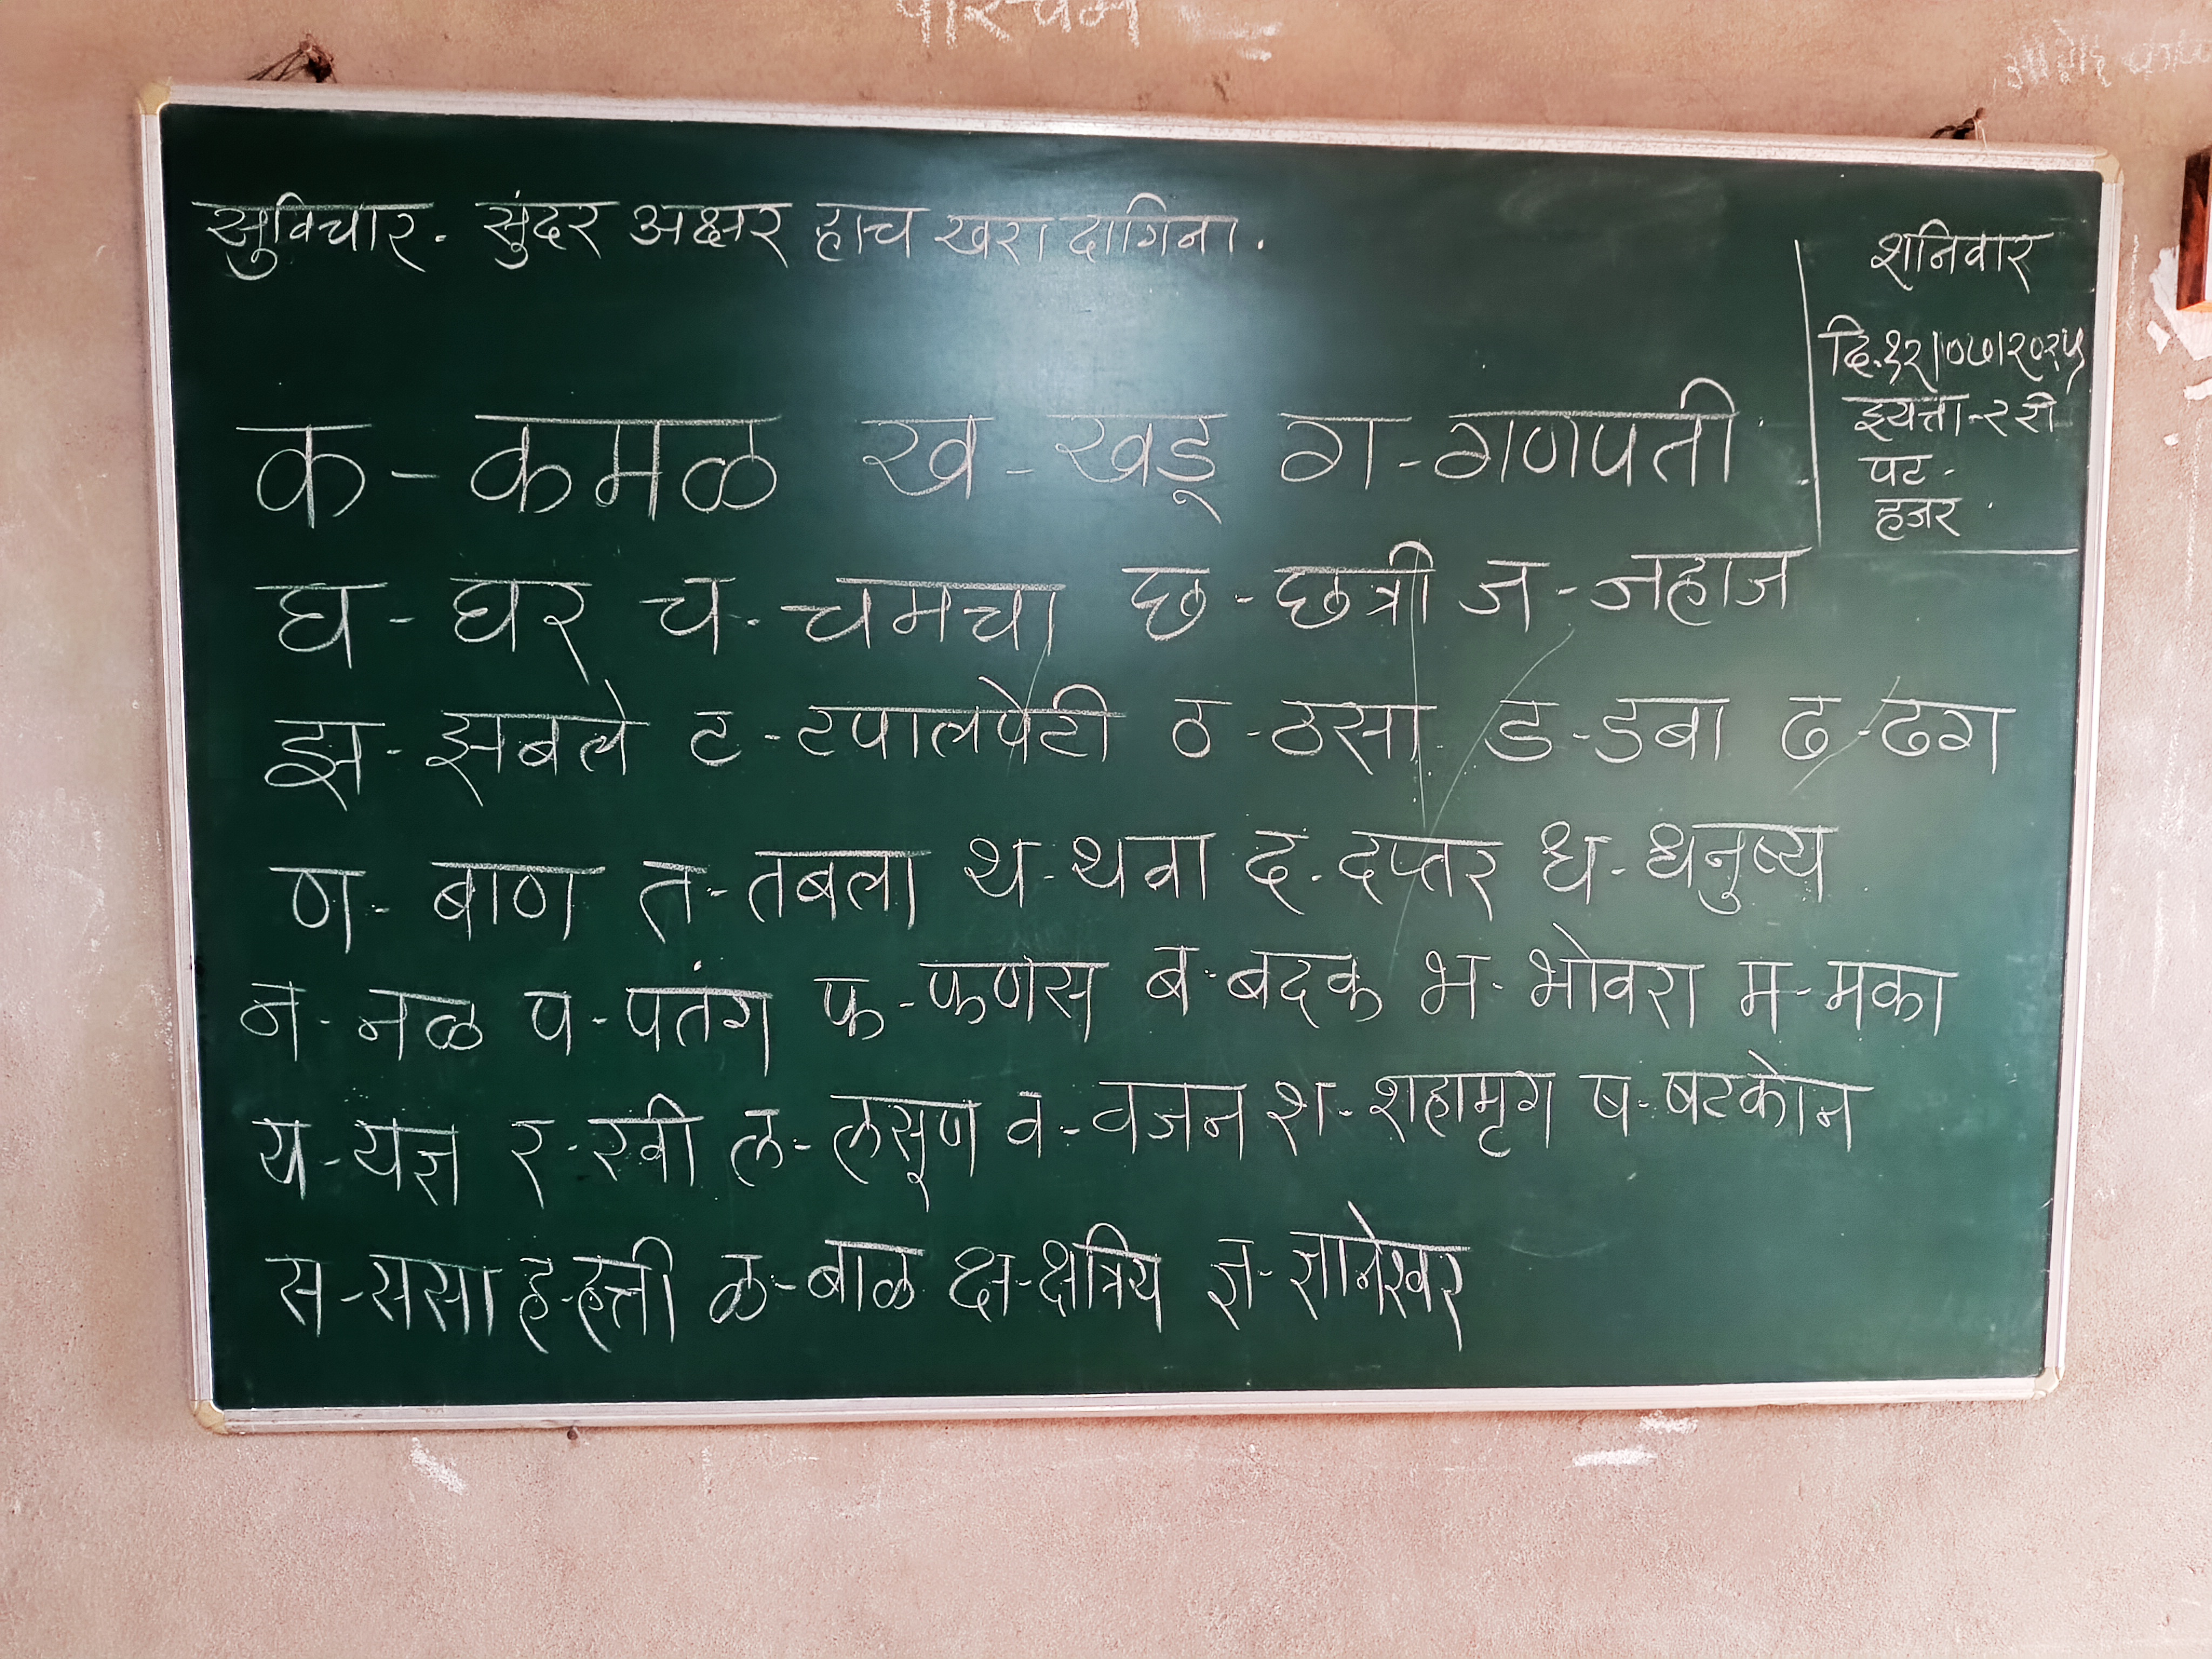 पश्चिम
सुविचार. सुंदर अक्षर हाच खरा दागिना.
शनिवार
दि.१२/०७/२०२५
इयत्ता-२ री
पट -
हजर
क - कमळ ख - खडू ग - गणपती
घ - घर च - चमचा छ - छत्री ज - जहाज
झ - झबले ट - टपालपेटी ठ - ठसा ड - डबा ढ - ढग
ण - बाण त - तबला थ - थवा द - दप्तर ध - धनुष्य
न - नळ प - पतंग फ - फणस ब - बदक भ - भोवरा म - मका
य - यज्ञ र - रवी ल - लसूण व - वजन श - शहामृग ष - षटकोन
स - ससा ह - हत्ती ळ - बाळ क्ष - क्षत्रिय ज्ञ - ज्ञानेश्वर